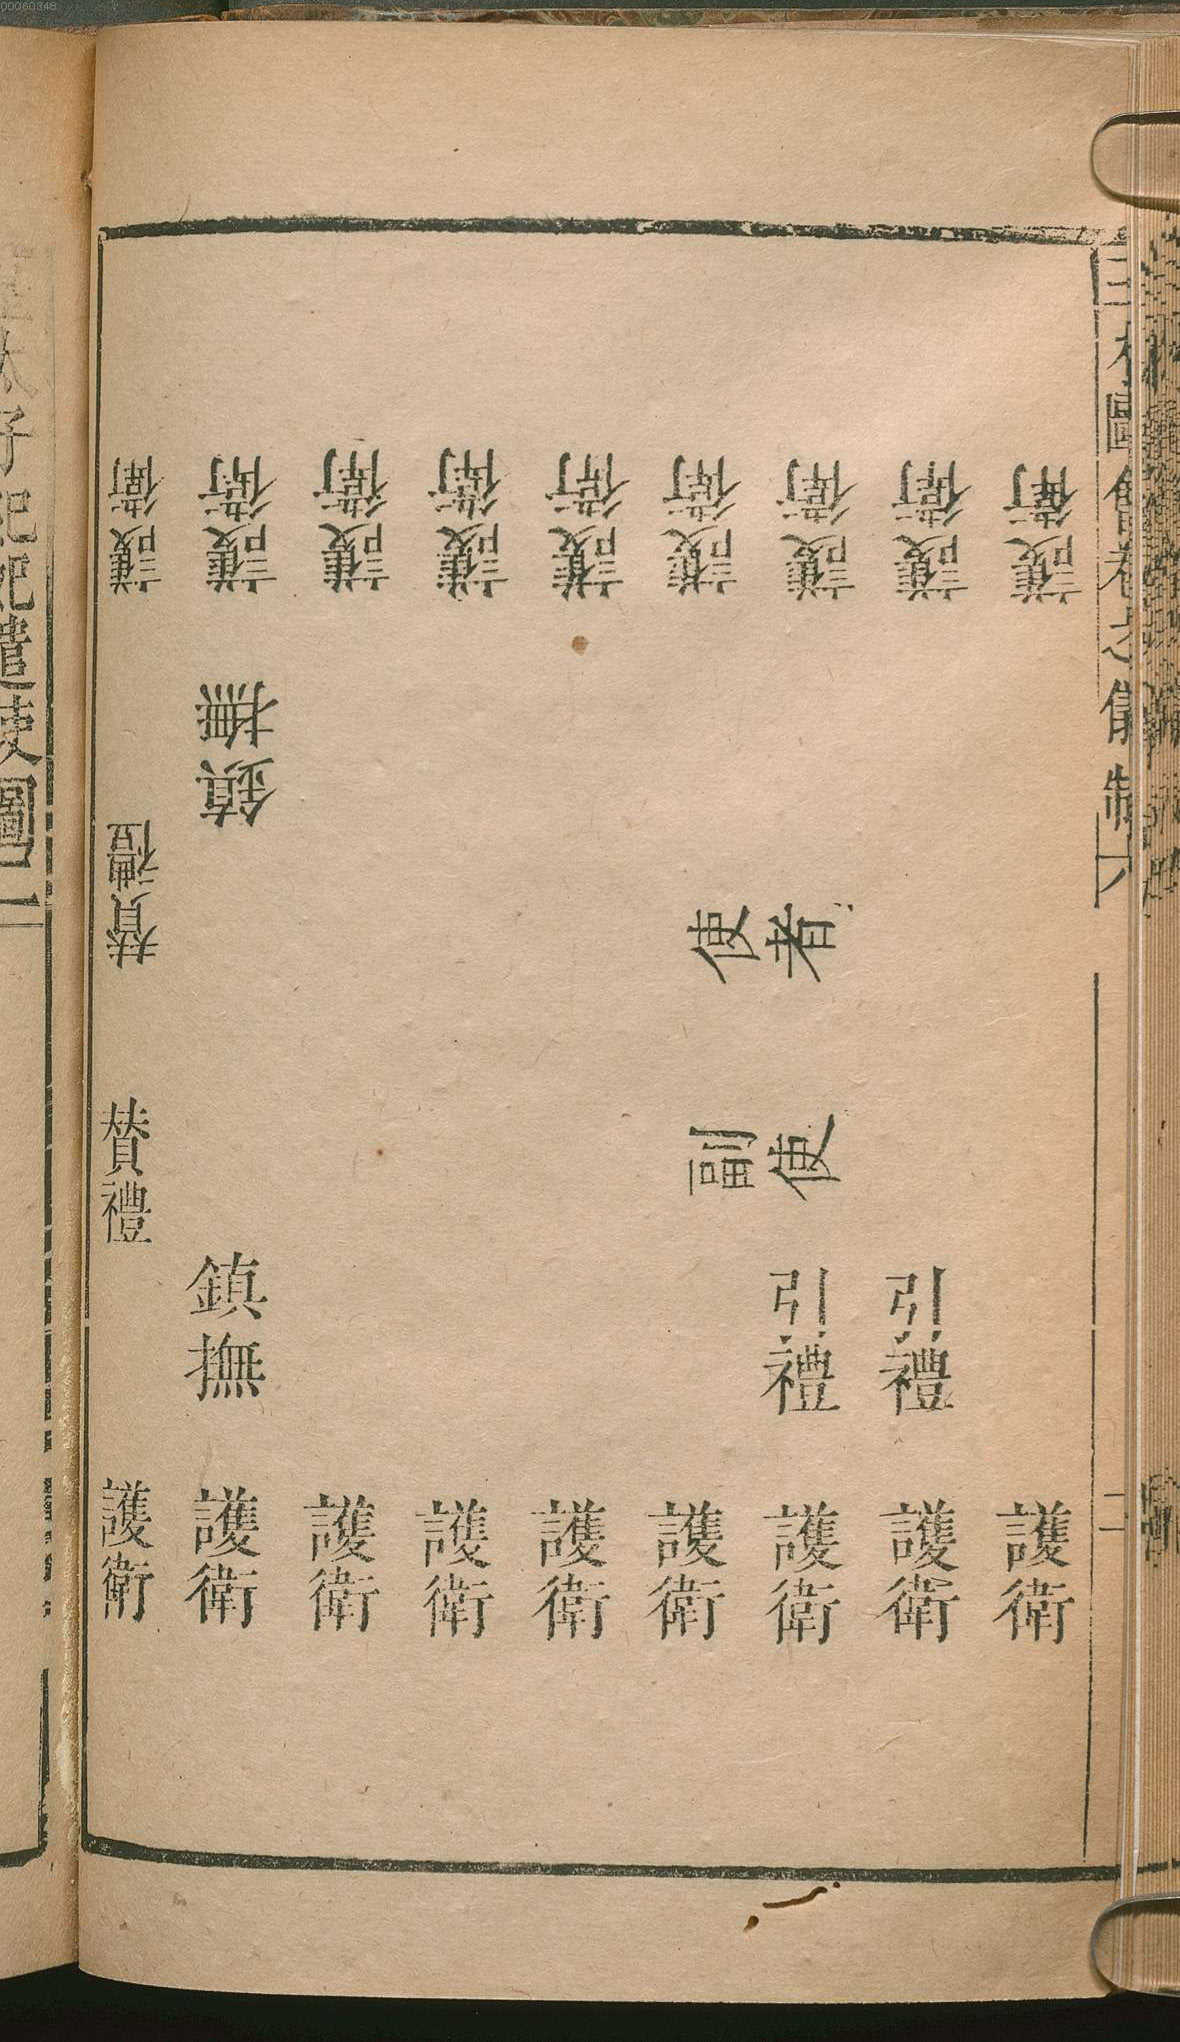 00060348
三才圖會卷之儀制六
護衛
護衛
護衛
護衛
護衛
護衛
護衛
護衛
護衛
鎮撫
贊禮
使者
副使
贊禮
鎮撫
引禮
引禮
護衛
護衛
護衛
護衛
護衛
護衛
護衛
護衛
護衛
太子納妃遣使圖二